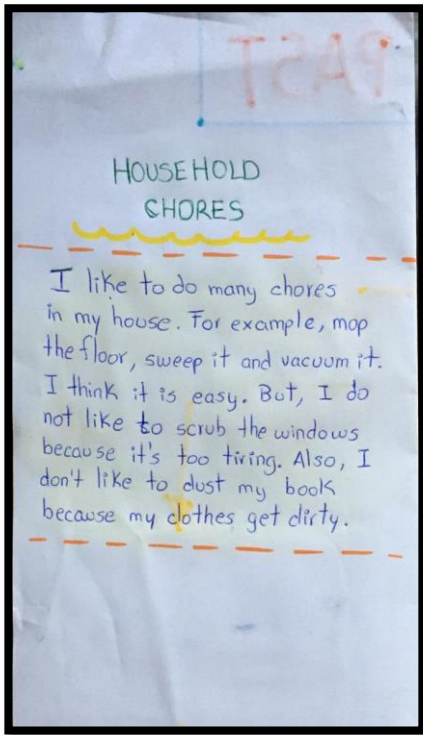 PAST
HOUSEHOLD
CHORES
I like to do many chores
in my house. For example, mop
the floor, sweep it and vacuum it.
I think it is easy. But, I do
not like to scrub the windows
because it's too tiring. Also, I
don't like to dust my book
because my clothes get dirty.